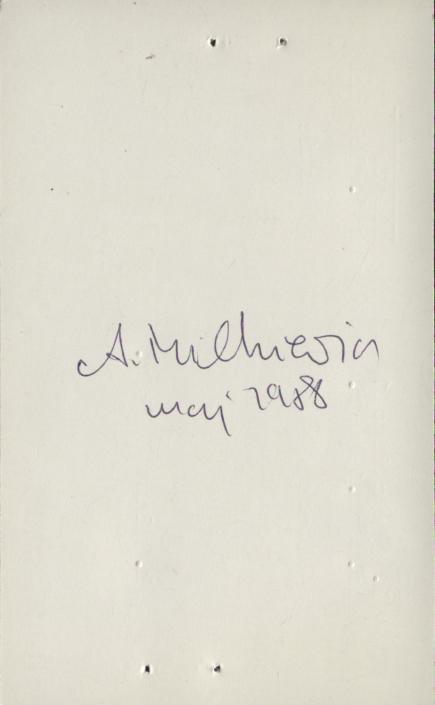 A. Mulkiewicz
maj 1988